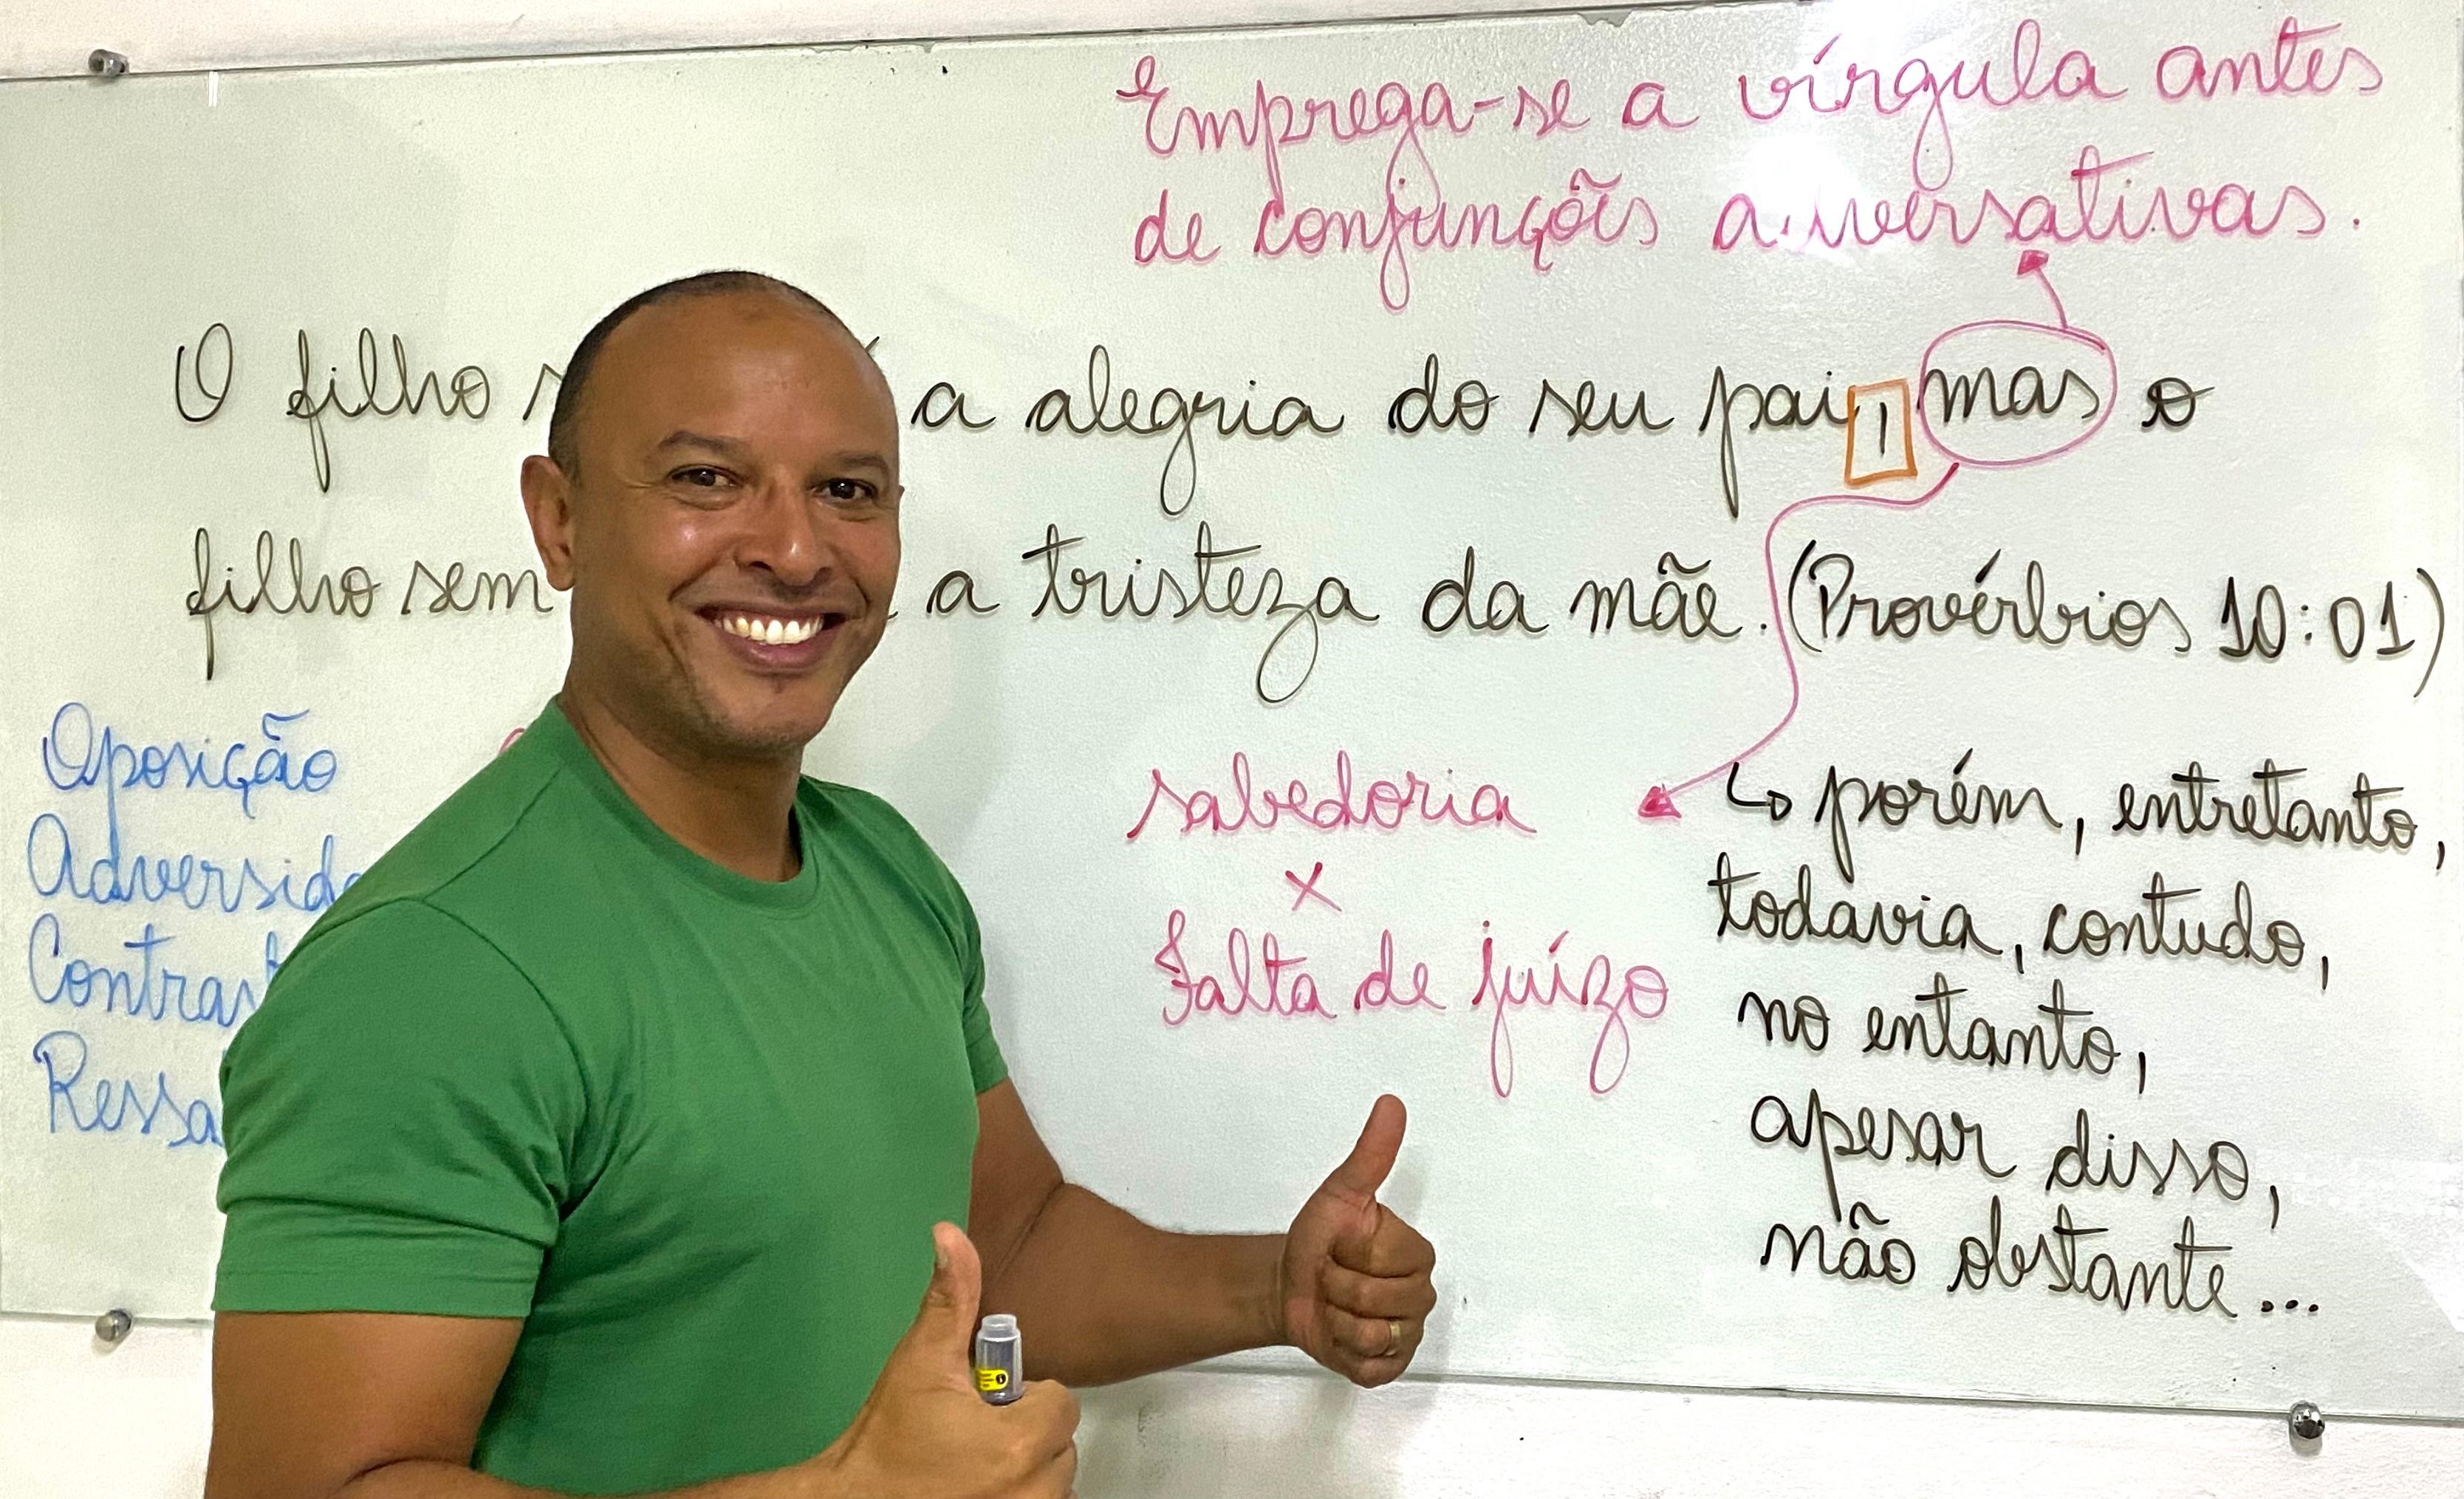 Emprega-se a vírgula antes
de conjunções adversativas.
O filho a alegria do seu pai, mas o
filho sem a tristeza da mãe. (Provérbios 10:01)
Oposição
sabedoria
x
Falta de juízo
↳ porém, entretanto,
todavia, contudo,
no entanto,
apesar disso,
não obstante...